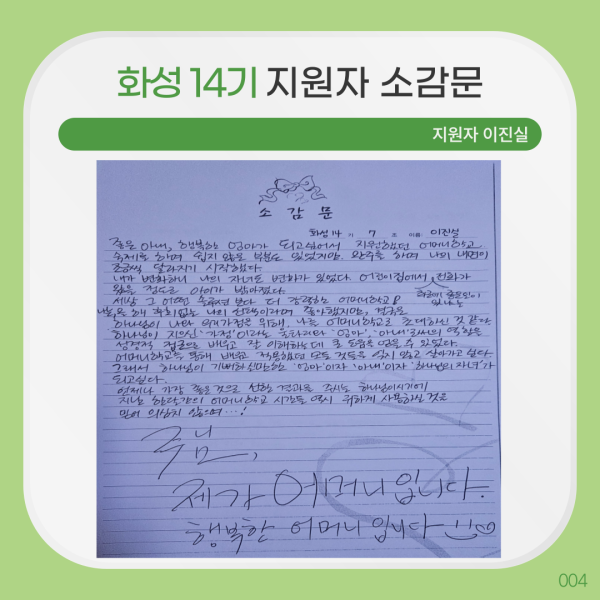 화성 14기 지원자 소감문
지원자 이진실
소 감 문
화성 14 기 7 조 이름: 이진실
좋은 아내, 행복한 엄마가 되고싶어서 지원했던 어머니학교.
숙제를 하며 쉽지 않은 부분도 있었지만 완주를 하며 나의 내면이
조금씩 달라지기 시작했다.
내가 변화하니 나의 자녀도 변화가 있었다. 어린이집에서 전화가
왔을 정도로 아이가 밝아졌다.
세상 그 어떤 보다 더 강력한 어머니학교!
나의 선택이라며 좋아했지만, 지금은
하나님이 나와 우리가정을 위해, 나를 어머니학교로 초대하신 것 같다.
하나님이 지으신 '가정'이라는 울타리와 '엄마', '아내'로서의 역할을
성경적 접근으로 배우고 잘 이해하는데 큰 도움을 얻을 수 있었다.
어머니학교를 통해 배우고 적용했던 모든 것들을 잊지 않고 살아가고 싶다.
그래서 하나님이 기뻐하실만한 '엄마'이자 '아내'이자 '하나님의 자녀'가
되고싶다.
언제나 가장 좋은 것으로 선한 결과를 주시는 하나님이시기에
지난 한달간의 어머니학교 시간들 역시 귀하게 사용하실 것을
믿어 의심치 않으며...!
주님,
제가 어머니입니다.
행복한 어머니입니다
004